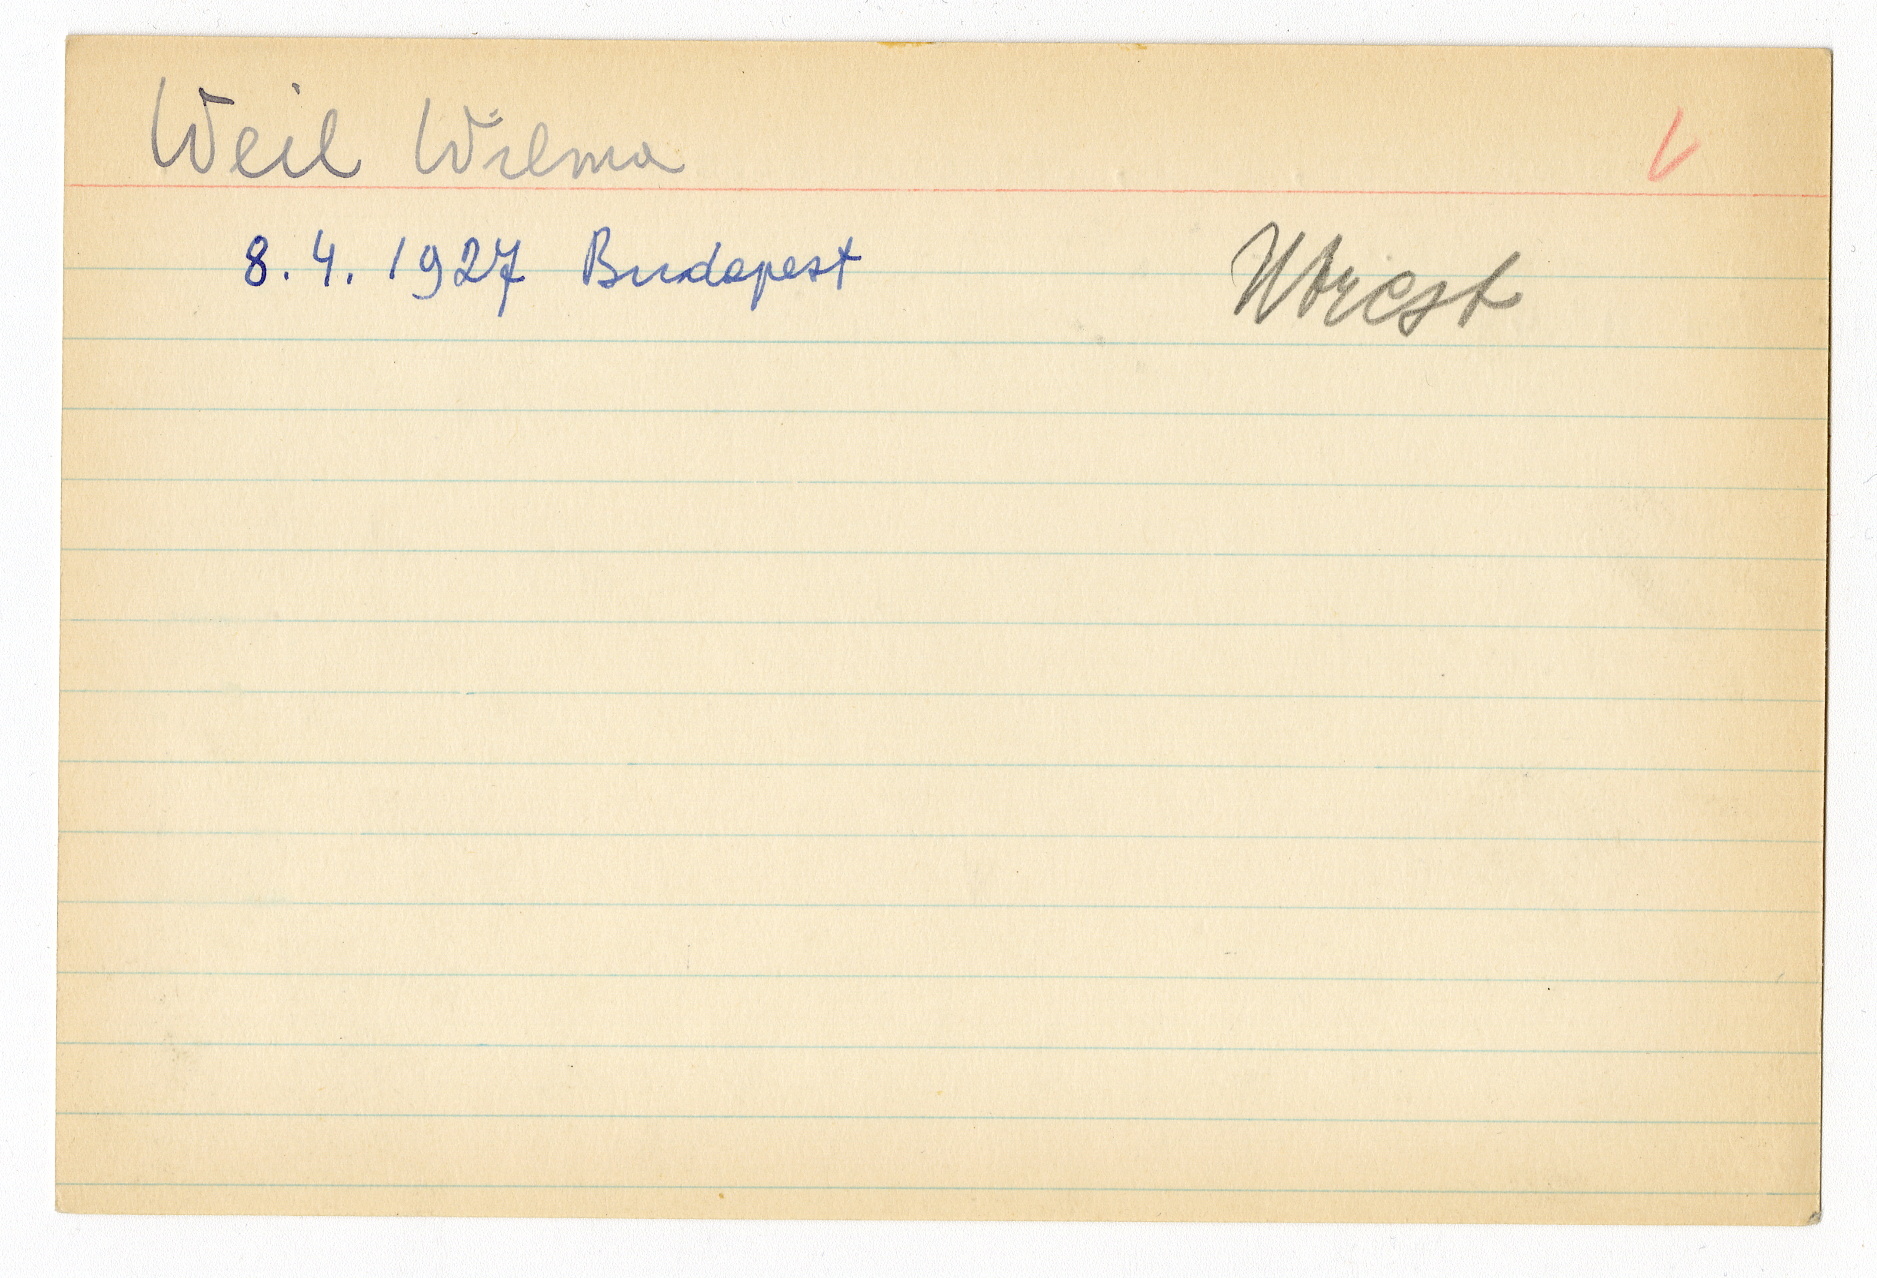 Weil Wilma
8. 4. 1927 Budapest